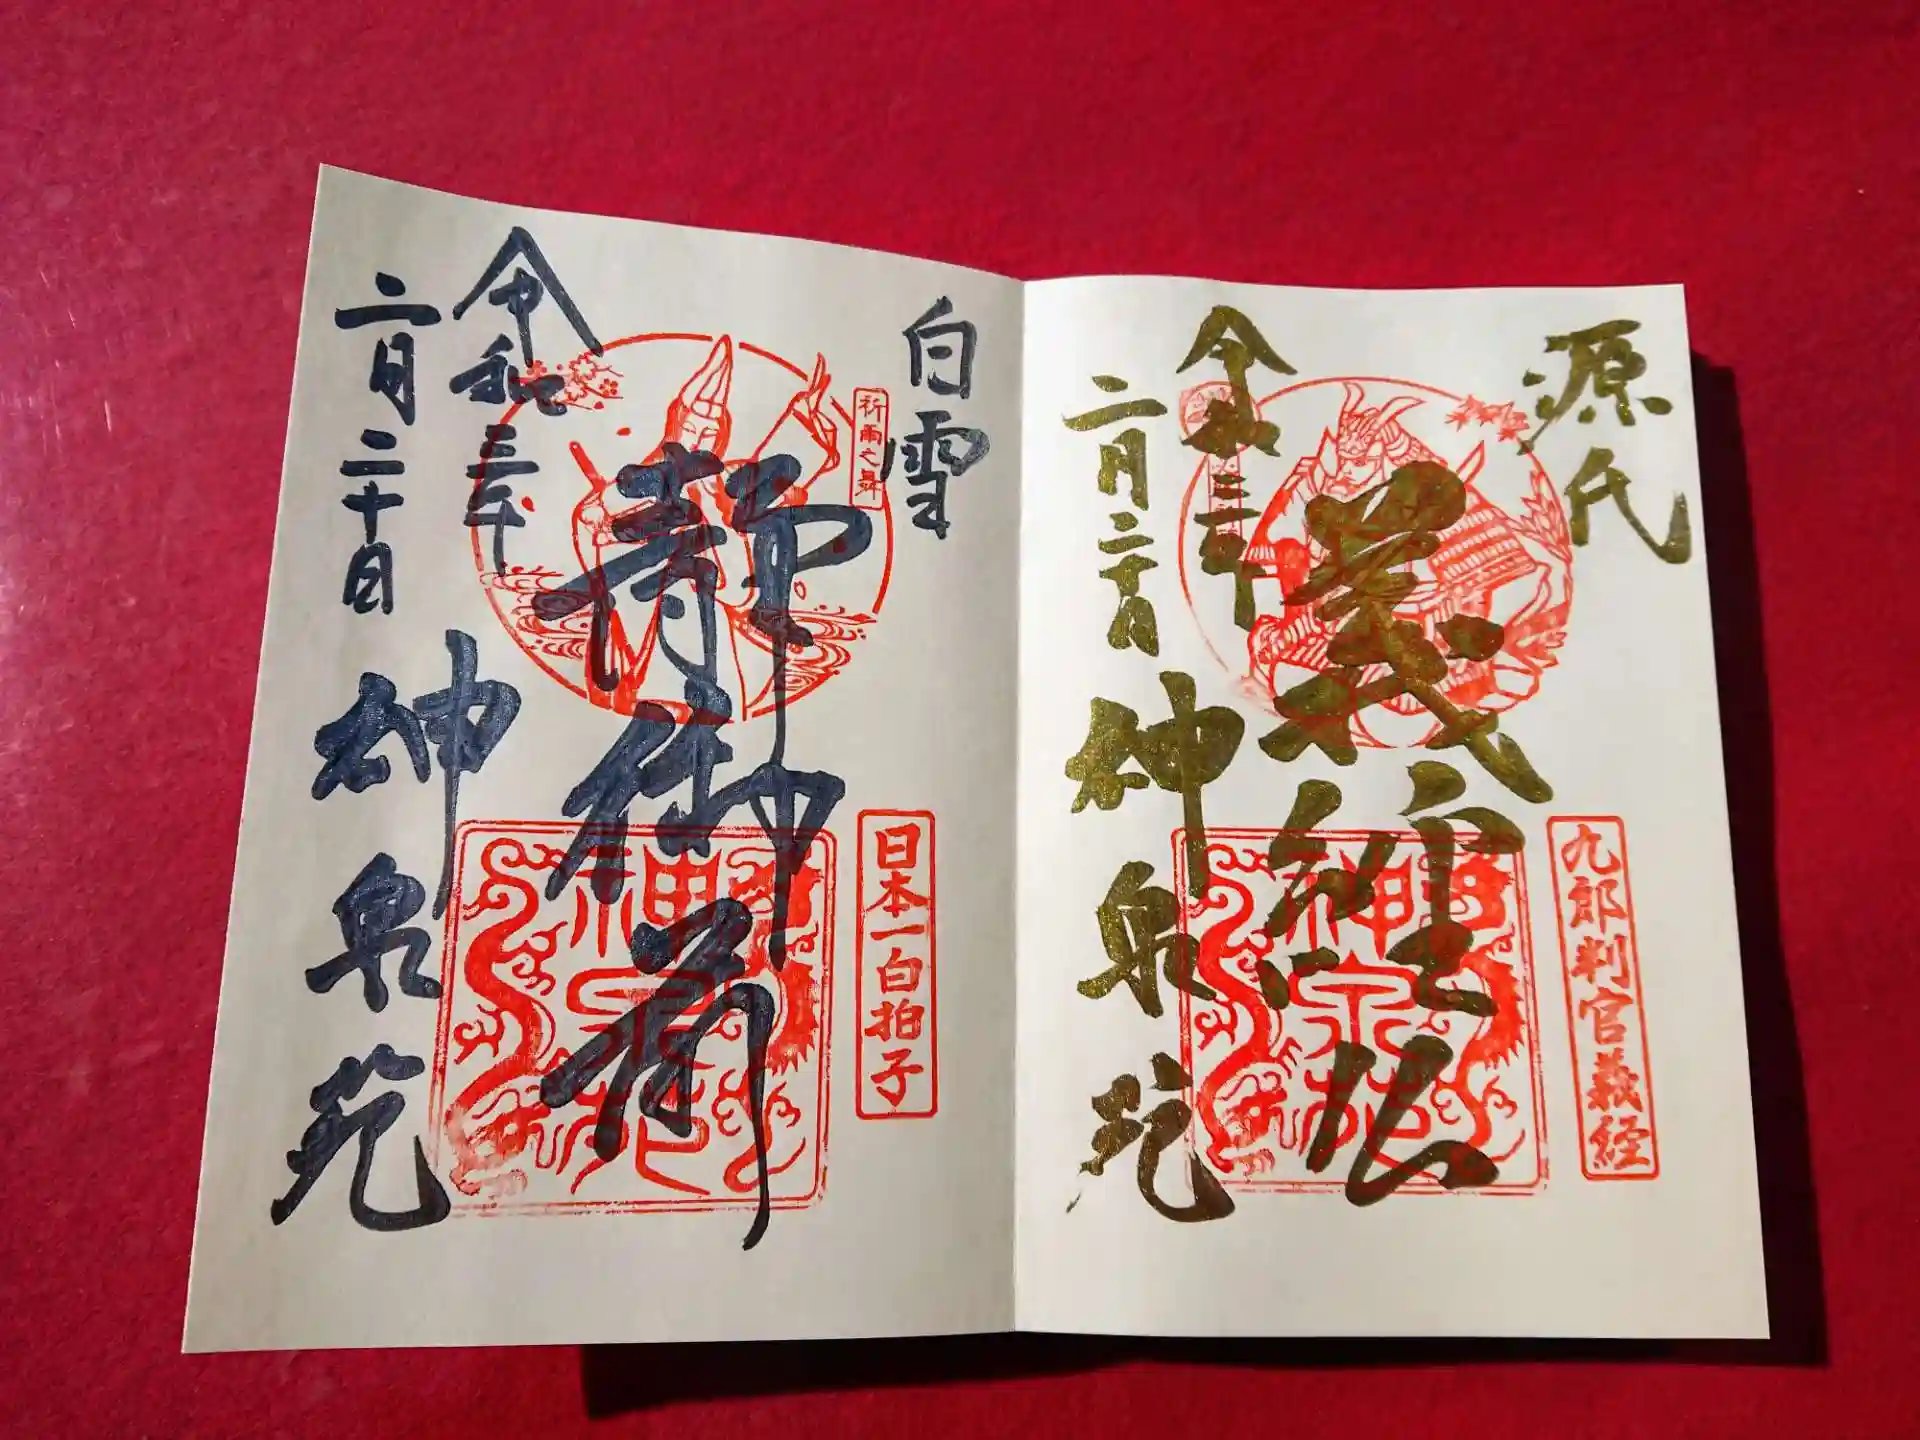 源氏
義経公
九郎判官義経
令和三年
二月二十日
神泉苑
神泉苑
白雪
祈雨之舞
静御前
日本一白拍子
神泉苑
令和三年
二月二十日
神泉苑